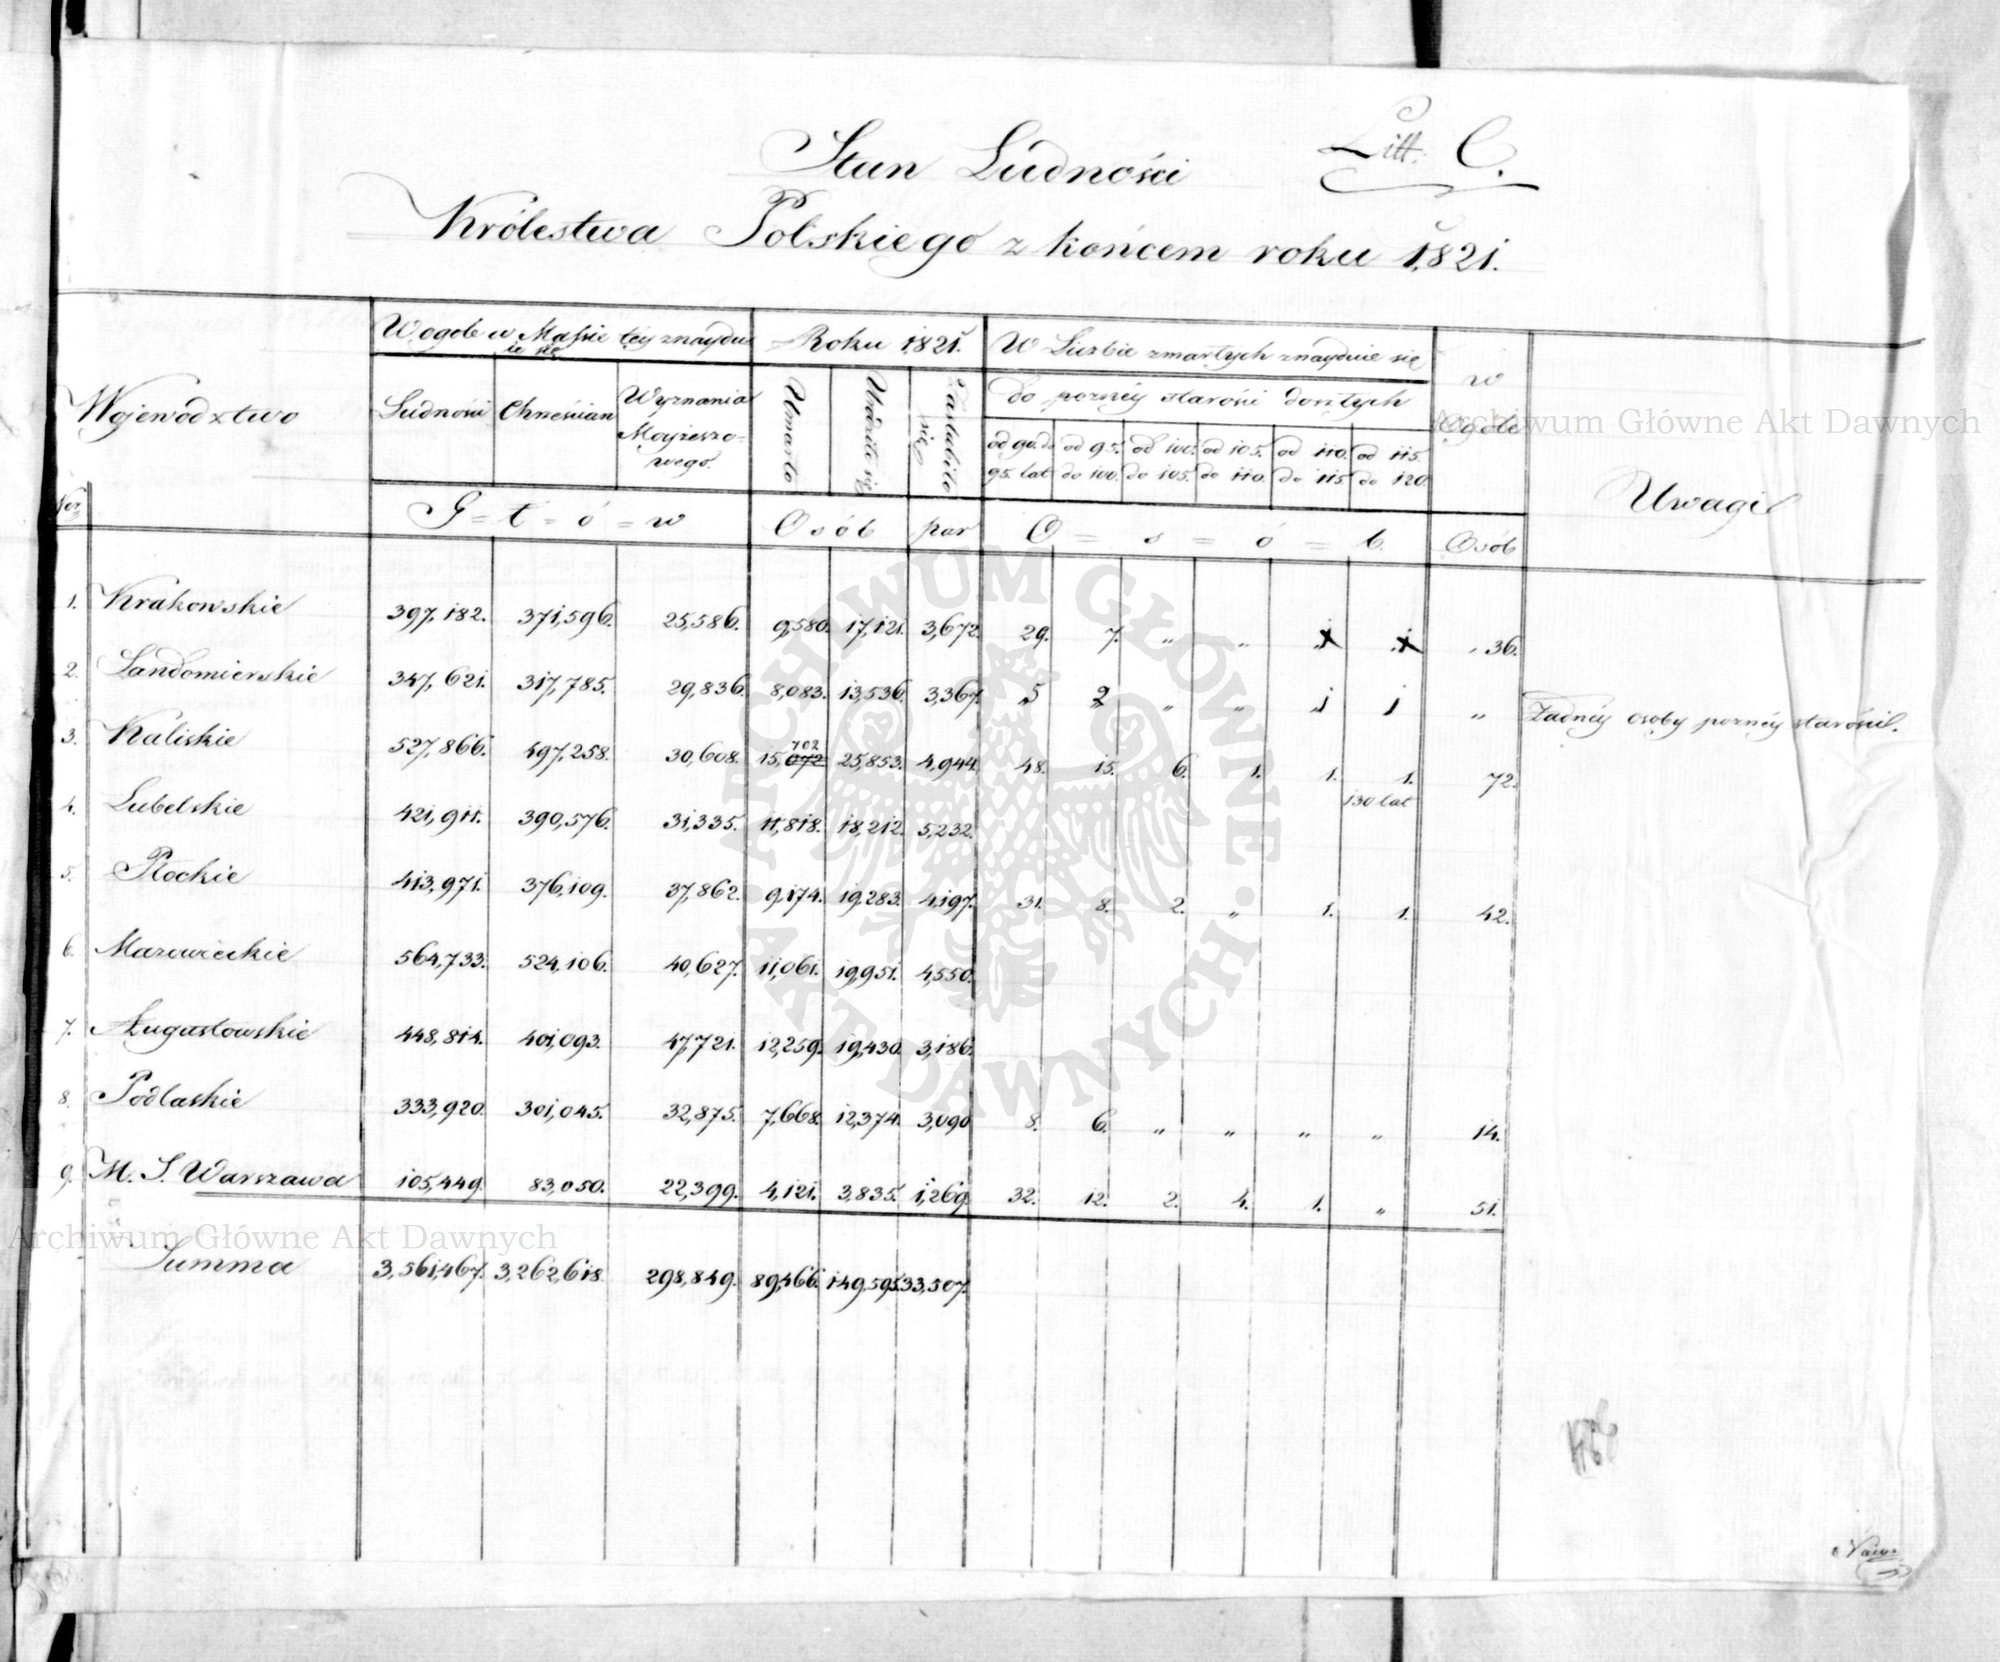 Litt. C.
Stan Ludności
Królestwa Polskiego z końcem roku 1821.
Nor
Wojewodztwo
W ogole w Massie tey znayduie się
Ludności
Chrześcian
Wyznania Moyżeszowego.
G = ł = ó = w
Roku 1821.
Umarło
Urodziło się
Zaślubiło się
Osób
par
W Liczbie zmarłych znayduie się
do pozney starości doszłych
od 90. do 95. lat
od 95. do 100.
od 100. do 105.
od 105. do 110.
od 110. do 115.
od 115. do 120.
O = s = ó = b.
w Ogóle
Osób
Uwagi
1. Krakowskie 397,182. 371,596. 25,586. 9,580. 17,121. 3,672. 29. 7. „ „ „ 36.
2. Sandomierskie 347,621. 317,785. 29,836. 8,083. 13,536. 3,367. 5 2 „ „ 1 1 „ Żadney osoby pozney starości.
3. Kaliskie 527,866. 497,258. 30,608. 15,072 702 25,853. 4,944. 48. 15. 6. 1. 1. 1. 72.
130 lat
4. Lubelskie 421,911. 390,576. 31,335. 11,818. 18,212. 5,232.
5. Płockie 413,971. 376,109. 37,862. 9,174. 19,283. 4,197. 31. 8. 2. „ 1. 1. 42.
6. Mazowieckie 564,733. 524,106. 40,627. 11,061. 19,951. 4,550.
7. Augustowskie 448,814. 401,093. 47,721. 12,259. 19,430. 3,186.
8. Podlaskie 333,920. 301,045. 32,875. 7,668. 12,374. 3,090 8. 6. „ „ „ „ 14.
9. M. S. Warszawa 105,449. 83,050. 22,399. 4,121. 3,835. 1,269. 32. 12. 2. 4. 1. „ 51.
Summa 3,561,467. 3,262,618. 298,849. 89,466. 149,595. 33,507.
Archiwum Główne Akt Dawnych
Archiwum Główne Akt Dawnych
ARCHIWUM GŁÓWNE · AKT DAWNYCH ·